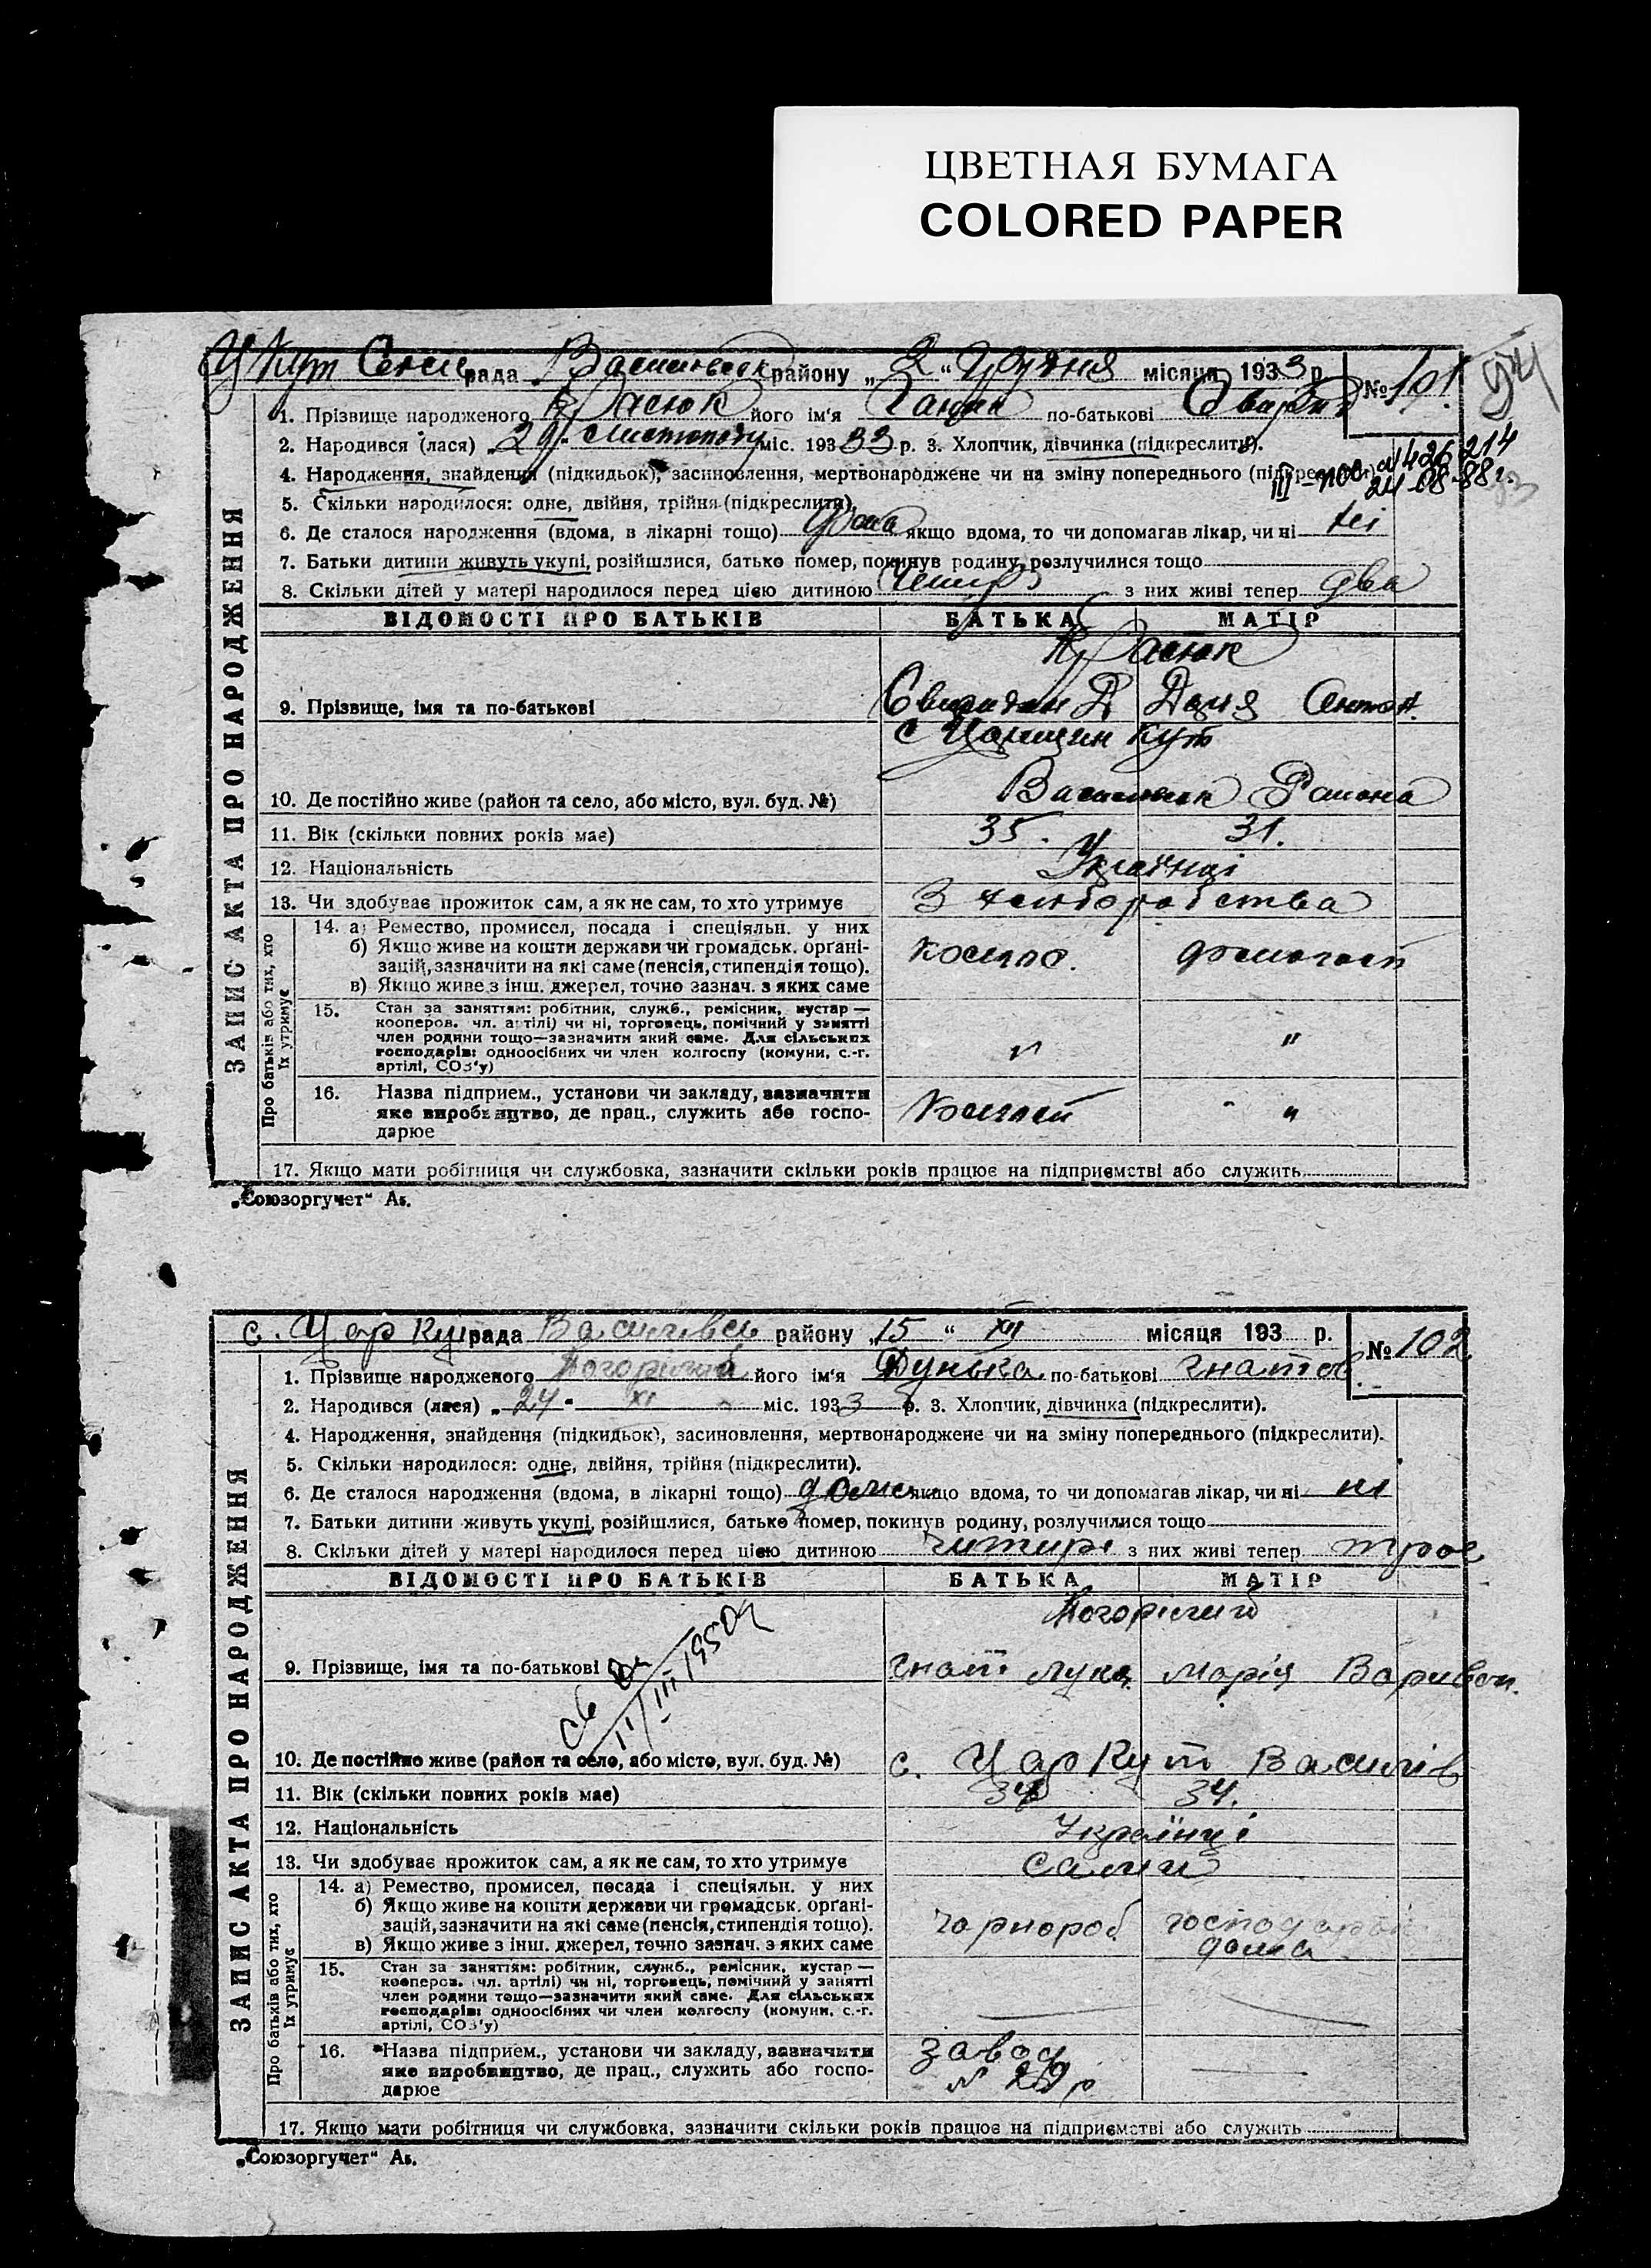 ЦВЕТНАЯ БУМАГА
COLORED PAPER
94
Ц Кут рада Василівськ району „2“ Грудня місяця 1933 р. № 101
1. Прізвище народженого Красюк його ім'я Ганна по-батькові
2. Народився (лася) „29“ Листопаду міс. 193 33 р. 3. Хлопчик, дівчинка (підкреслити).
4. Народження, знайдення (підкидьок), засиновлення, мертвонароджене чи на зміну попереднього (підкреслити)
III-ЖС № 426214
24-08-88г.
5. Скільки народилося: одне, двійня, трійня (підкреслити)
6. Де сталося народження (вдома, в лікарні тощо) дома якщо вдома, то чи допомагав лікар, чи ні ні
7. Батьки дитини живуть укупі, розійшлися, батько помер, покинув родину, розлучилися тощо
8. Скільки дітей у матері народилося перед цією дитиною з них живі тепер два
ЗАПИС АКТА ПРО НАРОДЖЕННЯ
ВІДОМОСТІ ПРО БАТЬКІВ БАТЬКА МАТІР
Красюк
9. Прізвище, імя та по-батькові Свиридон Д Дарія Антон.
с Царицин Кут
10. Де постійно живе (район та село, або місто, вул. буд. №) Василівськ Района
11. Вік (скільки повних років має) 35. 31.
12. Національність Українці
13. Чи здобуває прожиток сам, а як не сам, то хто утримує З хліборобства
Про батьків або тих, хто їх утримує
14. а) Ремество, промисел, посада і спеціяльн. у них
б) Якщо живе на кошти держави чи громадськ. орґані-
зацій, зазначити на які саме (пенсія, стипендія тощо).
в) Якщо живе з інш. джерел, точно зазнач. з яких саме
15. Стан за заняттям: робітник, служб., ремісник, кустар —
кооперов. чл. артілі) чи ні, торговець, помічний у занятті
член родини тощо—зазначити який саме. Для сільських
господарів: одноосібних чи член колгоспу (комуни, с.-г.
артілі, СОЗ'у) " "
16. Назва підприєм., установи чи закладу, зазначити
яке виробництво, де прац., служить або госпо-
дарює " "
17. Якщо мати робітниця чи службовка, зазначити скільки років працює на підприємстві або служить
„Союзоргучет“ А5.
с. Цар Кут рада Василівськ району „15“ XII місяця 193 р. № 102
1. Прізвище народженого Погорілий його ім'я Дунька по-батькові Гнатов.
2. Народився (лася) „24“ XI міс. 1933 р. 3. Хлопчик, дівчинка (підкреслити).
4. Народження, знайдення (підкидьок), засиновлення, мертвонароджене чи на зміну попереднього (підкреслити).
5. Скільки народилося: одне, двійня, трійня (підкреслити).
6. Де сталося народження (вдома, в лікарні тощо) дома якщо вдома, то чи допомагав лікар, чи ні ні
7. Батьки дитини живуть укупі, розійшлися, батько помер, покинув родину, розлучилися тощо
8. Скільки дітей у матері народилося перед цією дитиною чотирі з них живі тепер троє
ЗАПИС АКТА ПРО НАРОДЖЕННЯ
ВІДОМОСТІ ПРО БАТЬКІВ БАТЬКА МАТІР
Погорілий
9. Прізвище, імя та по-батькові Гнат Лука Марія Варивон.
11/III 1950
10. Де постійно живе (район та село, або місто, вул. буд. №) с. Цар Кут Василів
11. Вік (скільки повних років має) 34 34.
12. Національність Українці
13. Чи здобуває прожиток сам, а як не сам, то хто утримує сами
Про батьків або тих, хто їх утримує
14. а) Ремество, промисел, посада і спеціяльн. у них
б) Якщо живе на кошти держави чи громадськ. орґані-
зацій, зазначити на які саме (пенсія, стипендія тощо). чорнороб господарює
в) Якщо живе з інш. джерел, точно зазнач. з яких саме дома
15. Стан за заняттям: робітник, служб., ремісник, кустар —
кооперов. чл. артілі) чи ні, торговець, помічний у занятті
член родини тощо—зазначити який саме. Для сільських
господарів: одноосібних чи член колгоспу (комуни, с.-г.
артілі, СОЗ'у)
16. Назва підприєм., установи чи закладу, зазначити завод
яке виробництво, де прац., служить або госпо- № 29
дарює
17. Якщо мати робітниця чи службовка, зазначити скільки років працює на підприємстві або служить
„Союзоргучет“ А5.